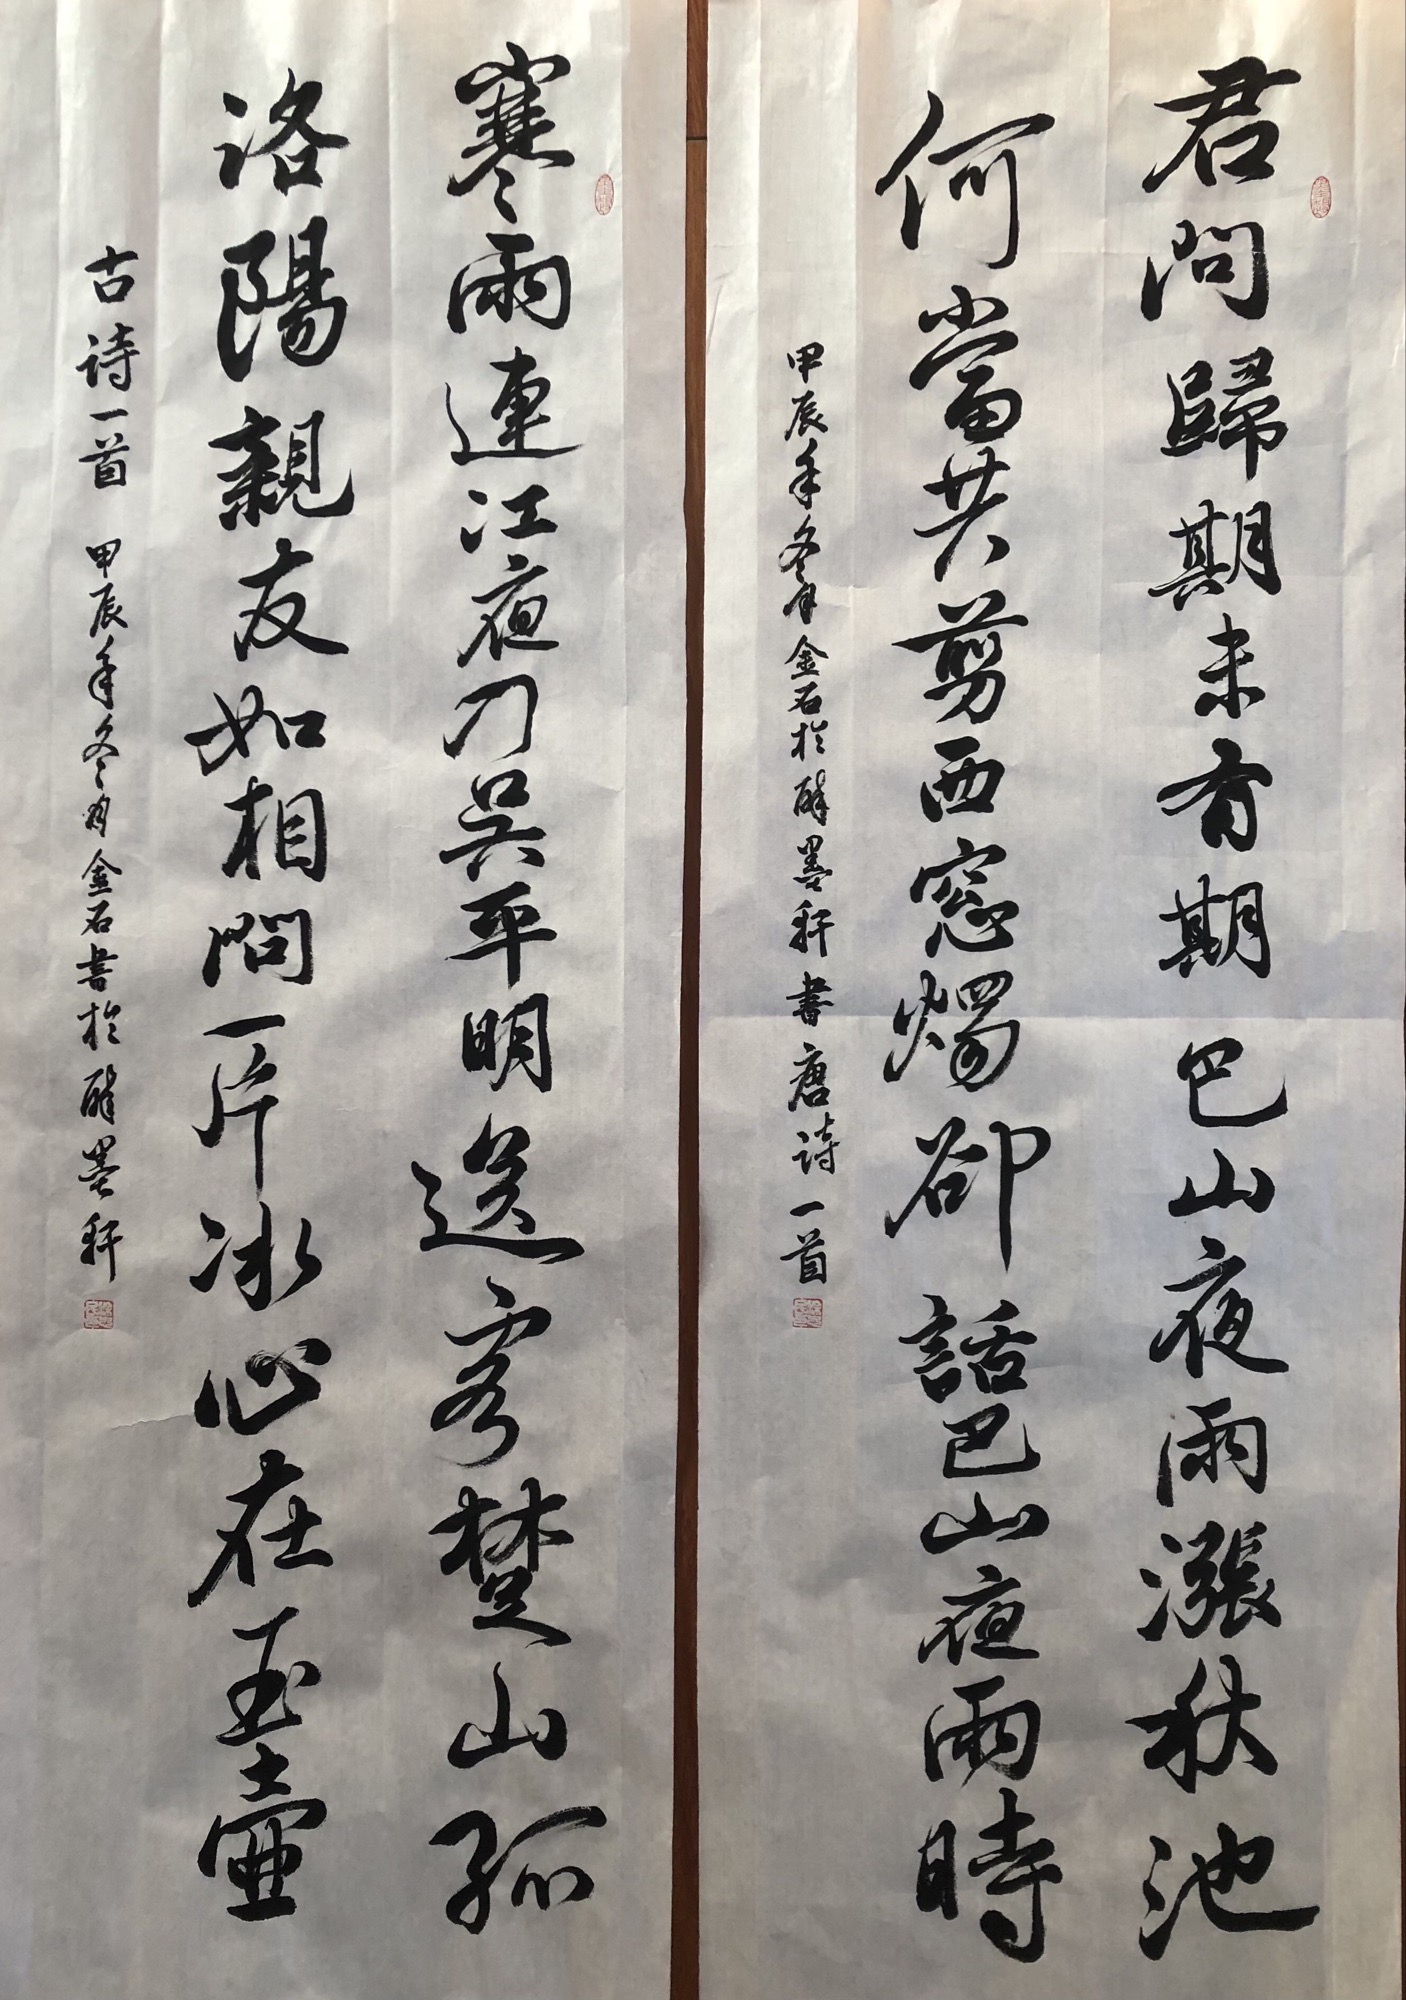 君問歸期未有期巴山夜雨漲秋池
何當共剪西窓燭卻話巴山夜雨時
甲辰年冬月金石於醉墨軒書唐詩一首
寒雨連江夜刀吳平明送客楚山孤
洛陽親友如相問一片冰心在玉壺
古詩一首 甲辰年冬月金石書於醉墨軒